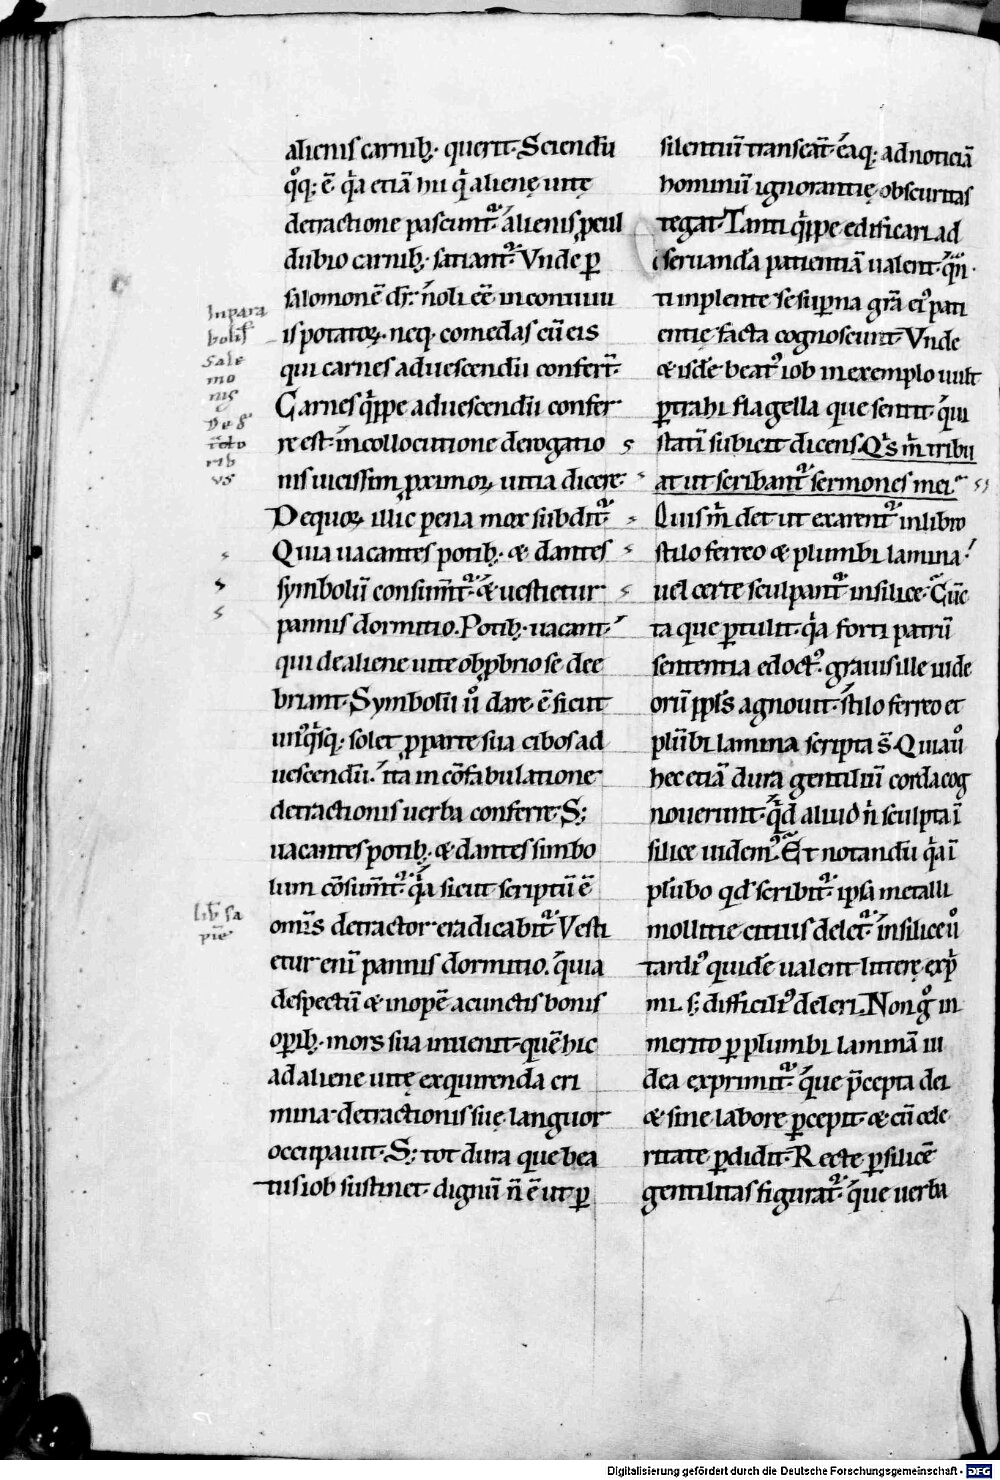 alienis carnib;· querit· Sciendū
q°q; ē· q̄a etiā hii q̄ alienę uitę
detractione pascunt᷑· alienis ꝓcul
dubio carnib;· satiant᷑· Vnde ꝑ
salomonē dr̄· noli eē in conuiuii
is potatoꝝ· neq; comedas cū eis
qui carnes ad uescendū confert̄·
Carnes q̄ppe ad uescendū confer
re est· in collocutione derogatio
nis uicissim ꝓximoꝝ uitia dicere·
De quoꝝ illic pena mox subdit᷑·
Quia uacantes potib;· & dantes
symbolū consumt᷑· & uestietur
pannis dormitio. Potib;· uacant·
qui de aliene uite obꝓbrio se dee
briant· Symbolū ū° dare· ē sicut
unq̄sq; solet ꝓ parte sua cibos ad
uescendū· ita in cōfabulatione
detractionis uerba conferre· S;
uacantes potib;· & dantes simbo
lum cōsumt᷑· q̄a sicut scriptū ē
omīs detractor eradicabit᷑· Vesti
etur enī pannis dormitio. quia
despectū & inopē a cunctis bonis
oꝑib;· mors sua inuenit· quē hic
ad aliene uitę exquirenda cri
mina· detractionis suę languor
occupauit· S; tot dura que bea
tus iob sustinet· dignū n̄ ē ut ꝑ
In para
bolis
Sale
mo
nis
De
rib
vs
lib̄ sa
piē
silentiū transeāt· eaq; ad noticiā
hominū ignorantię obscuritas
tegat· Tanti q̄ppe edificari ad
seruandā patientiā ualent· q̄n
ti inplente se suꝑna gr̄a ei° pati
entię facta cognoscunt· Vnde
& isdē beat° iob in exemplo uult
ꝑtrahi flagella que sentit· qui
statī subicit dicens· Q's m̄ tribu
at ut scribant᷑ sermones mei·
Quis m̄ det ut exarent᷑ in libro
stilo ferreo & plumbi lamina·
uel certe sculpant᷑ in silice· Cūc
ta que ꝑtulit· q̄a forti patrū
sententia edoct°· grauis ille iude
orū ꝓpl's agnouit· stilo ferreo et
plūbi lamina scripta s̄· Quia ū°
hec etiā dura gentiliū corda cog
nouerunt· q̄d aliud n̄ sculpta ī
silice uidem°· Et notandū q̄a ī
plūbo qd̄ scribit᷑· ipsa metalli
mollitie citius delet᷑· in silice ū°
tardi° quidē ualent litterę expͥ
mi· s; difficili° deleri. Non g° in
merito ꝑ plumbi laminā iu
dea exprimit᷑· que p̄cepta dei
& sine labore ꝑcepit· & cū cele
ritate ꝑdidit· Recte ꝑ silicē
gentilitas figurat᷑· que uerba
Digitalisierung gefördert durch die Deutsche Forschungsgemeinschaft - DFG